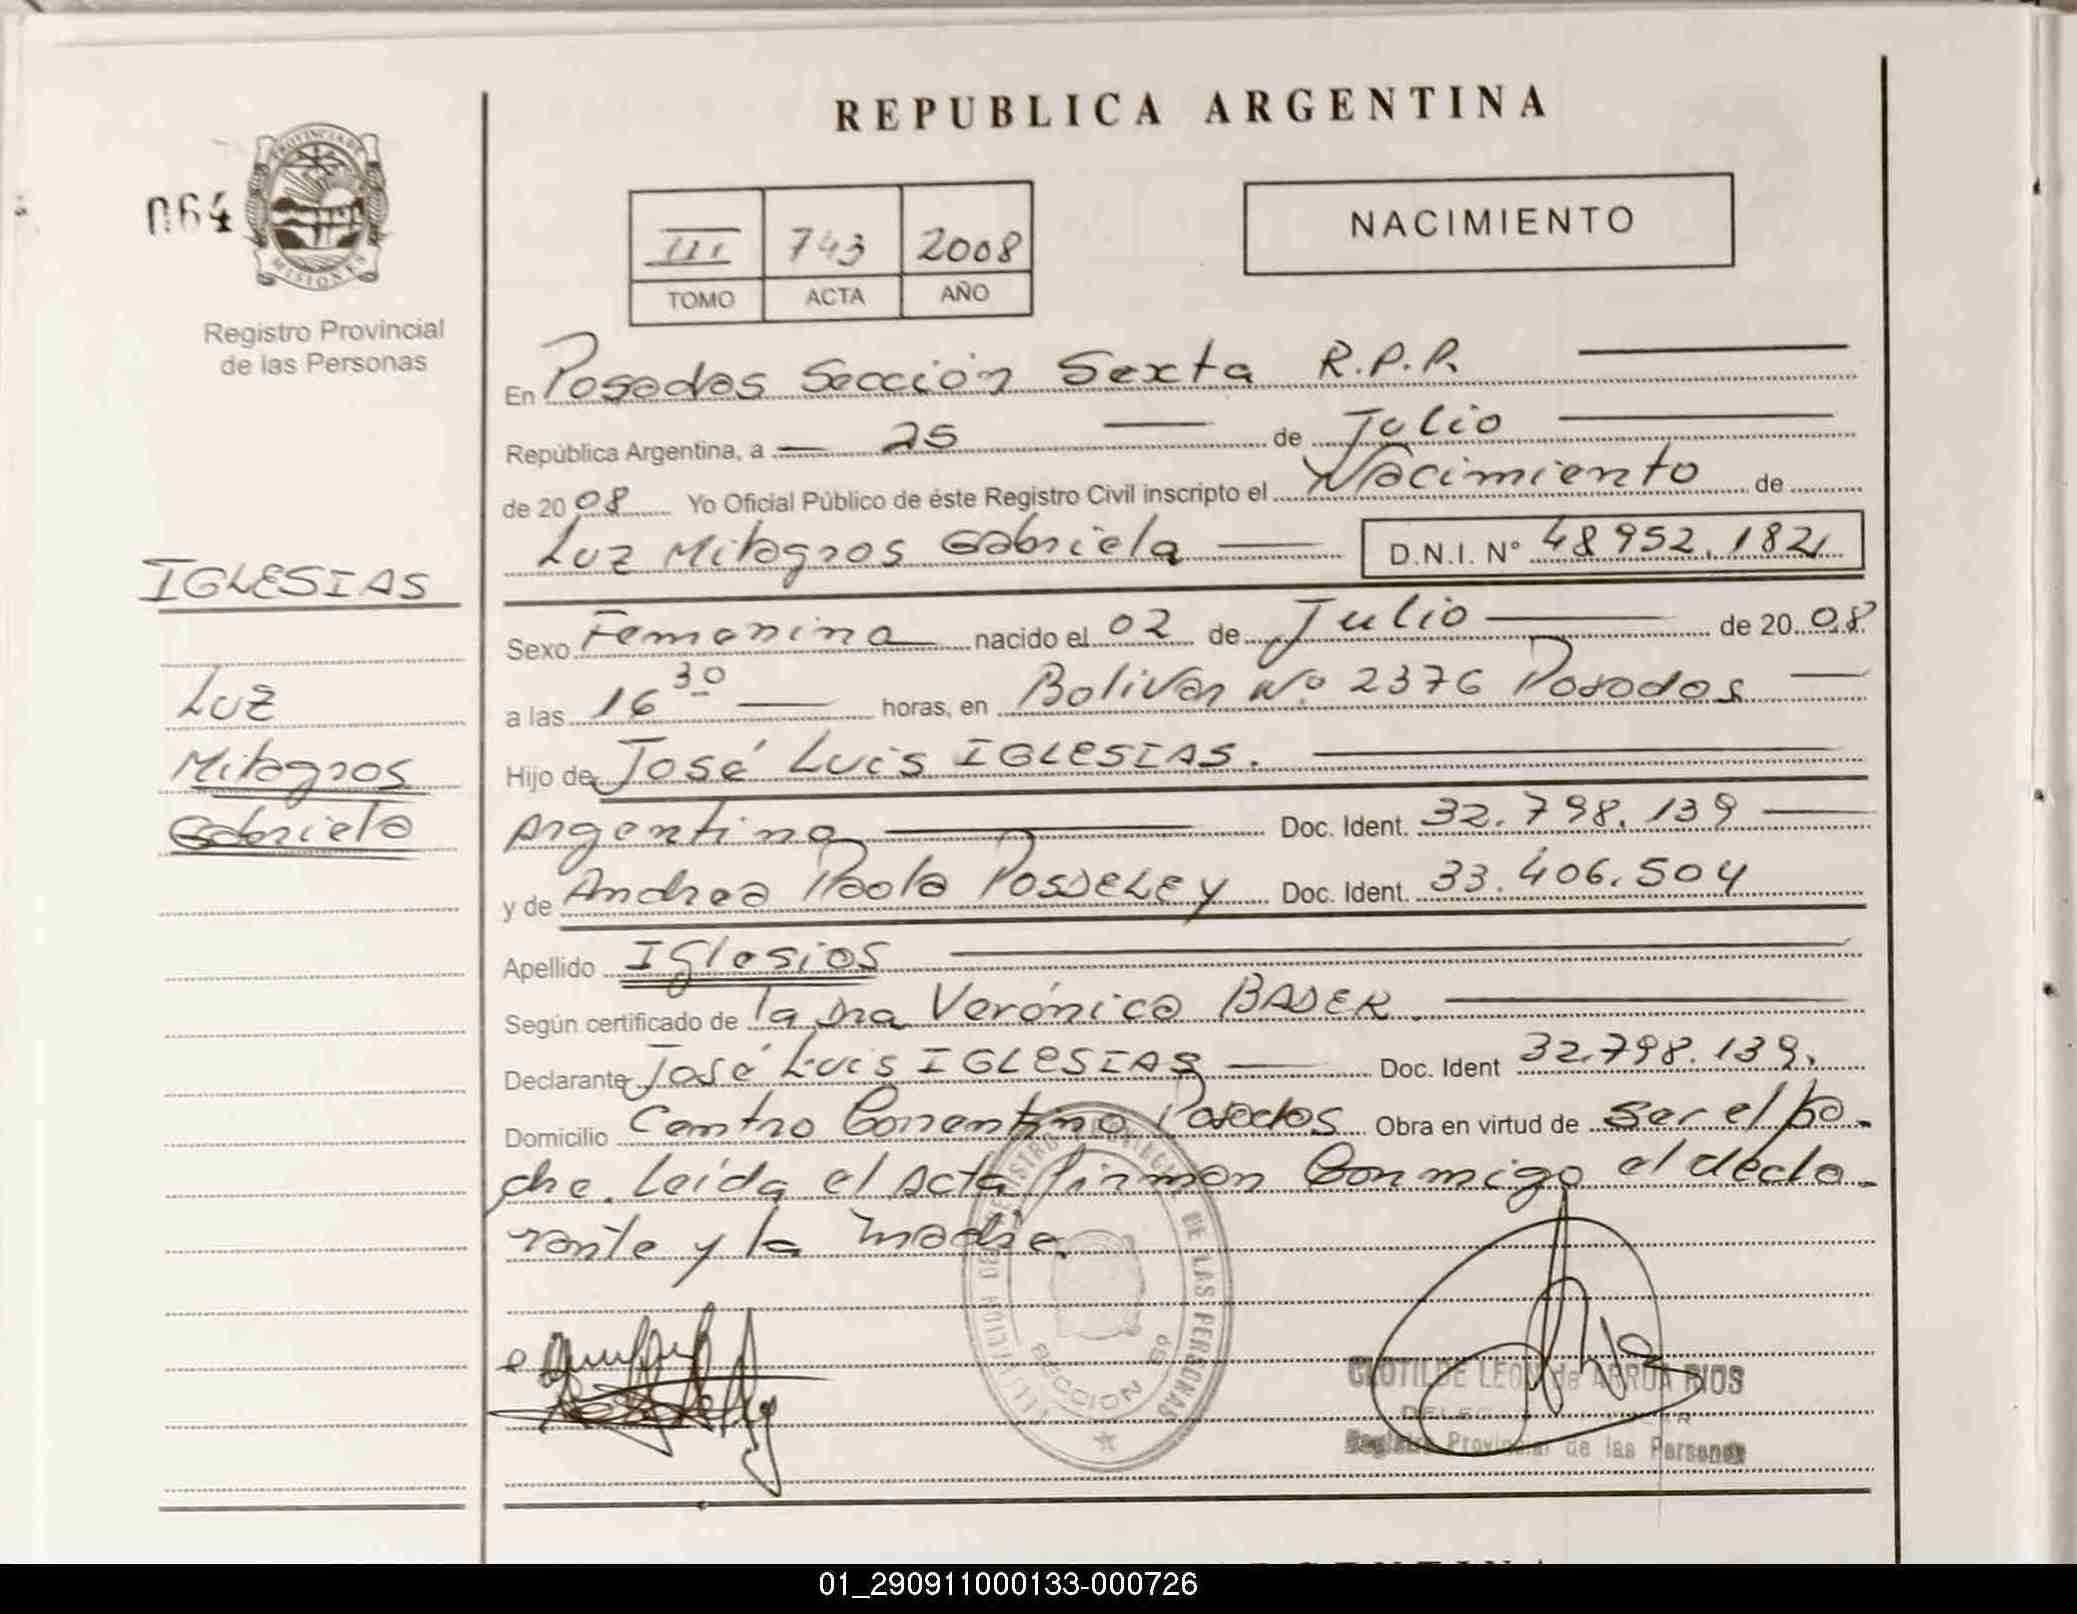 REPUBLICA ARGENTINA
064
PROVINCIA DE
MISIONES
Registro Provincial
de las Personas
III 743 2008
TOMO ACTA AÑO
NACIMIENTO
En Posadas Sección Sexta R.P.P.
República Argentina, a 25 de Julio
de 2008 Yo Oficial Público de éste Registro Civil inscripto el Nacimiento de
Luz Milagros Gabriela D.N.I. Nº 48952.182
IGLESIAS
Luz
Milagros
Gabriela
Sexo Femenino nacido el 02 de Julio de 2008
a las 16 30 horas, en Bolivar Nº 2376 Posadas
Hijo de José Luis IGLESIAS.
Argentino Doc. Ident. 32.798.139
y de Andrea Paola POSDELEY Doc. Ident. 33.406.504
Apellido Iglesias
Según certificado de la Dra Verónica BADER.
Declarante José Luis IGLESIAS Doc. Ident 32.798.139.
Domicilio Centro Correntino Posadas Obra en virtud de ser el pa-
dre. Leída el Acta firman Conmigo el decla-
rante y la madre.
REGISTRO PROVINCIAL DE LAS PERSONAS
SECCION 6ª
CLOTILDE LEON de ARRUA RIOS
Registro Provincial de las Personas
01_290911000133-000726